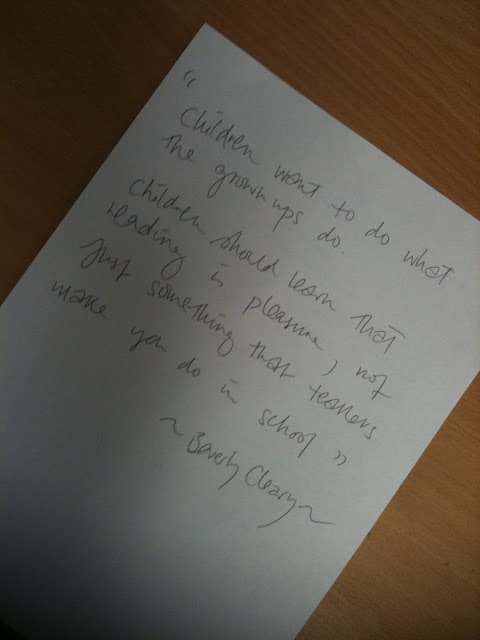 "
Children want to do what
the grownups do.
Children should learn that
reading is pleasure, not
just something that teachers
make you do in school"
~ Beverly Cleary ~